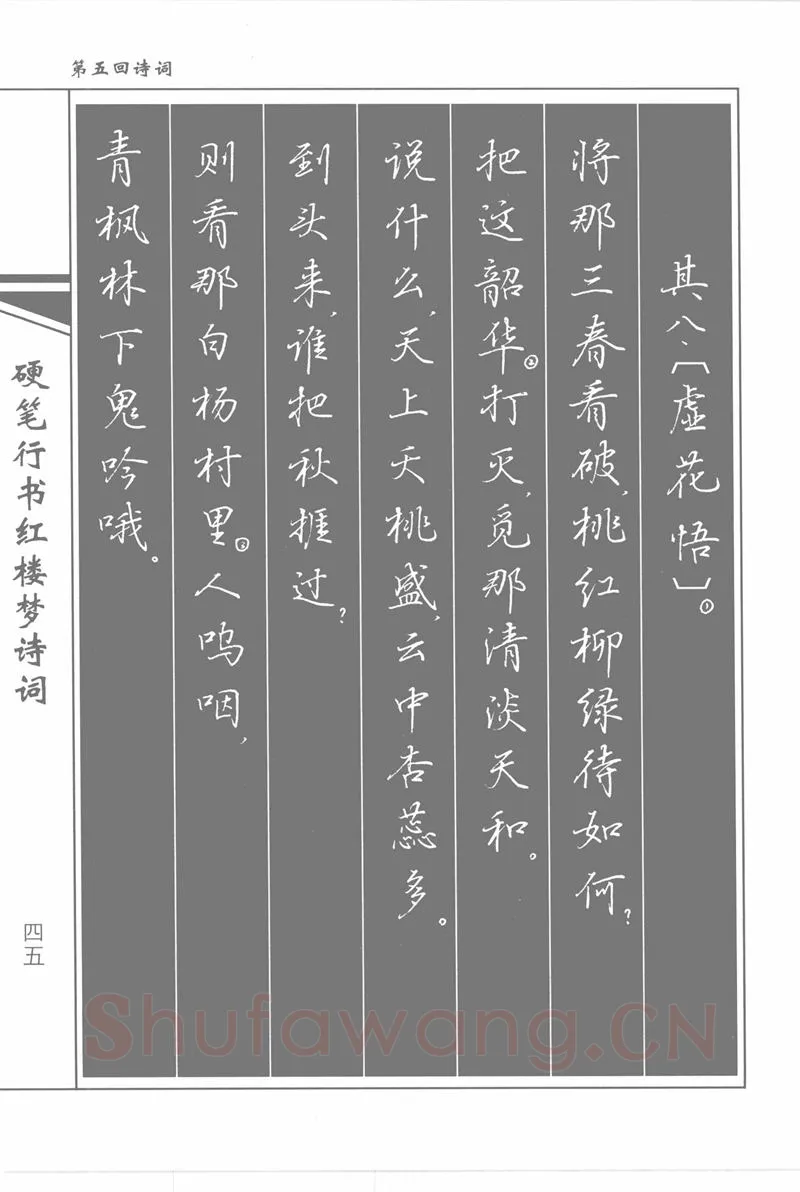 第五回诗词
其八、〔虚花悟〕。①
将那三春看破，桃红柳绿待如何？
把这韶华②打灭，觅那清淡天和。
说什么，天上夭桃盛，云中杏蕊多。
到头来，谁把秋捱过？
则看那白杨村里③人呜咽，
青枫林下鬼吟哦。
硬笔行书红楼梦诗词
四五
Shufawang.CN